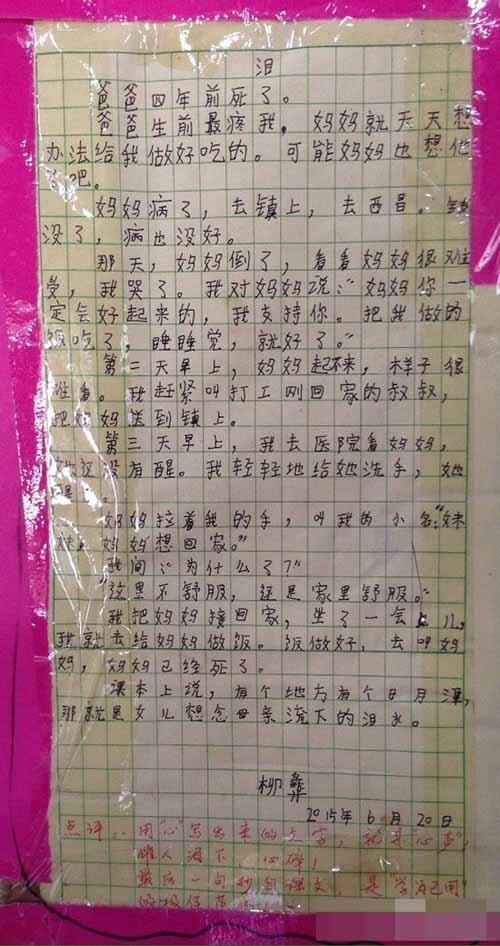 泪
爸爸四年前死了。
爸爸生前最疼我，妈妈就天天想
办法给我做好吃的。可能妈妈也想他
了吧。
妈妈病了，去镇上，去西昌。钱
没了，病也没好。
那天，妈妈倒了，看看妈妈很难
受，我哭了。我对妈妈说：“妈妈你一
定会好起来的，我支持你。把我做的
饭吃了，睡睡觉，就好了。”
第二天早上，妈妈起不来，样子很
难看。我赶紧叫打工刚回家的叔叔，
把妈妈送到镇上。
第三天早上，我去医院看妈妈，
她还没有醒。我轻轻地给她洗手，她
醒了。
妈妈拉着我的手，叫我的小名：“妹
妹，妈妈想回家。”
我问：“为什么了？”
“这里不舒服，还是家里舒服。”
我把妈妈接回家，坐了一会儿，
我就去给妈妈做饭。饭做好，去叫妈
妈，妈妈已经死了。
课本上说，有个地方有个日月潭，
那就是女儿想念母亲流下的泪水。
柳彝
2015年6月20日
点评：用“心”写出来的文字，就是“心声”，
催人泪下 心碎！
最后一句妙自课文，是“学为己用”
的